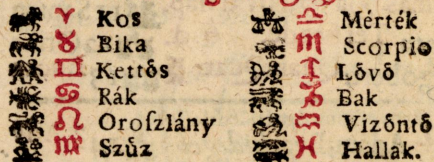 ♈ Kos
♉ Bika
♊ Kettős
♋ Rák
♌ Oroſzlány
♍ Szűz
♎ Mérték
♏ Scorpio
♐ Lövő
♑ Bak
♒ Vizöntő
♓ Hallak.